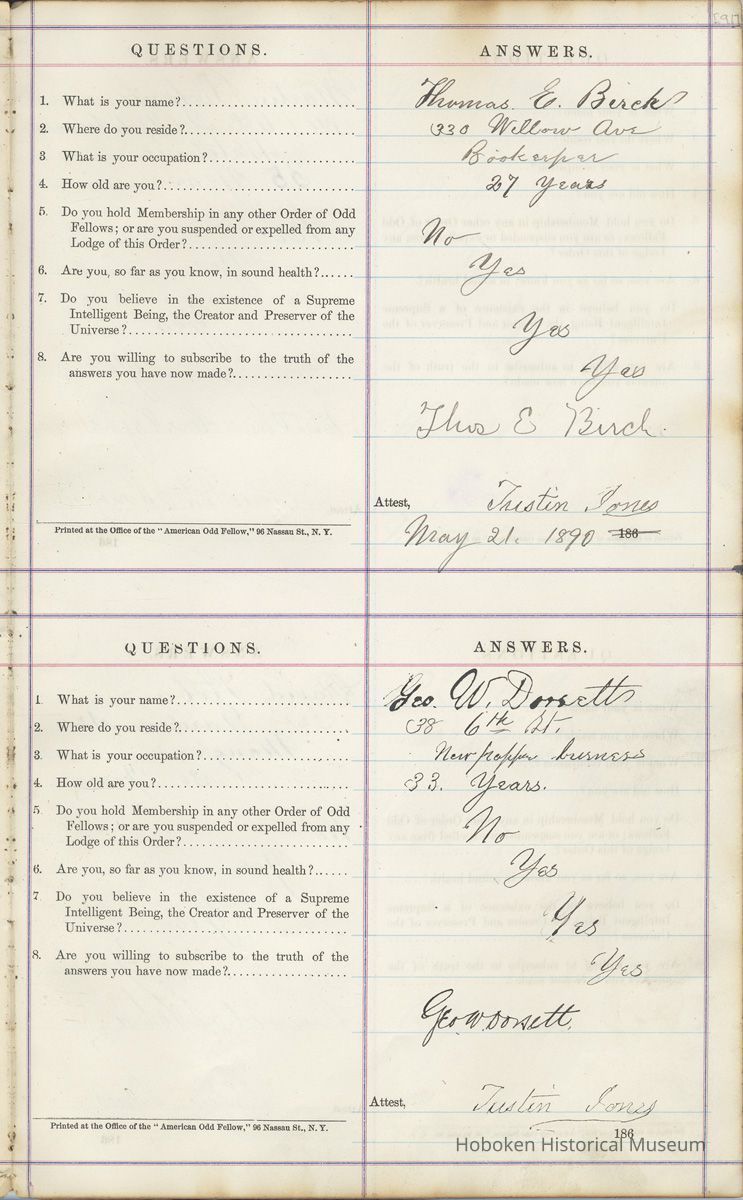 [91]
QUESTIONS. ANSWERS.
1. What is your name?........ Thomas. E. Birck
2. Where do you reside?........ 330 Willow Ave
3 What is your occupation?........ Bookerper
4. How old are you?........ 27 Years
5. Do you hold Membership in any other Order of Odd
Fellows; or are you suspended or expelled from any
Lodge of this Order?........ No
6. Are you, so far as you know, in sound health?...... Yes
7. Do you believe in the existence of a Supreme
Intelligent Being, the Creator and Preserver of the
Universe?........ Yes
8. Are you willing to subscribe to the truth of the
answers you have now made?........ Yes
Thos E Birck.
Attest, Justin Jones
Printed at the Office of the "American Odd Fellow," 96 Nassau St., N. Y.
May 21. 1890 186
QUESTIONS. ANSWERS.
1 What is your name?........ Geo. W. Dorsett
2. Where do you reside?........ 38 6th St.
3. What is your occupation?........ New papper burness
4. How old are you?........ 33. Years.
5 Do you hold Membership in any other Order of Odd
Fellows; or are you suspended or expelled from any
Lodge of this Order?........ No
6. Are you, so far as you know, in sound health?...... Yes
7 Do you believe in the existence of a Supreme
Intelligent Being, the Creator and Preserver of the
Universe?........ Yes
8. Are you willing to subscribe to the truth of the
answers you have now made?........ Yes
Geo. W. Dorsett.
Attest, Justin Jones
Printed at the Office of the "American Odd Fellow," 96 Nassau St., N. Y.
186
Hoboken Historical Museum